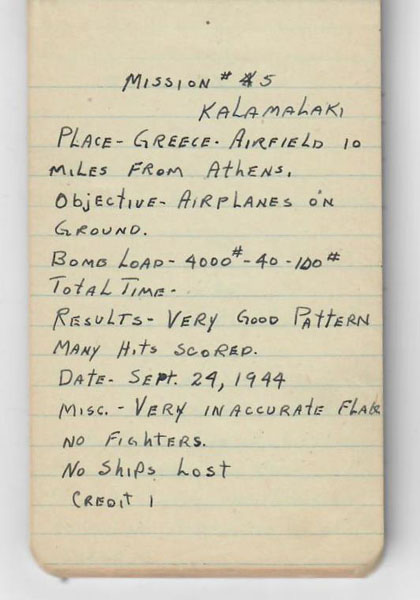 Mission # 5
Kalamalaki
Place- Greece. Airfield 10
miles from Athens.
Objective- Airplanes on
Ground.
Bomb Load- 4000#-40-100#
Total Time-
Results- Very Good Pattern
Many Hits scored.
Date- Sept. 24, 1944
Misc.- Very inaccurate Flak
no Fighters.
No Ships Lost
Credit 1